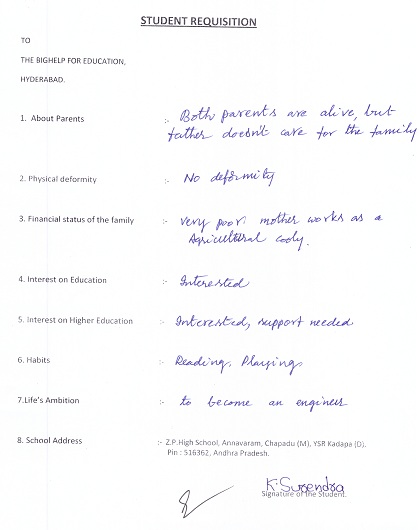 STUDENT REQUISITION
TO
THE BIGHELP FOR EDUCATION,
HYDERABAD.
1. About Parents :- Both parents are alive, but
father doesn't care for the family
2. Physical deformity :- No deformity
3. Financial status of the family :- Very poor. mother works as a
Agricultural cooly.
4. Interest on Education :- Interested
5. Interest on Higher Education :- Interested, support needed
6. Habits :- Reading, Playing
7.Life's Ambition :- to become an engineer
8. School Address :- Z.P.High School, Annavaram, Chapadu (M), YSR Kadapa (D),
Pin : 516362, Andhra Pradesh.
K. Surendra
Signature of the Student.